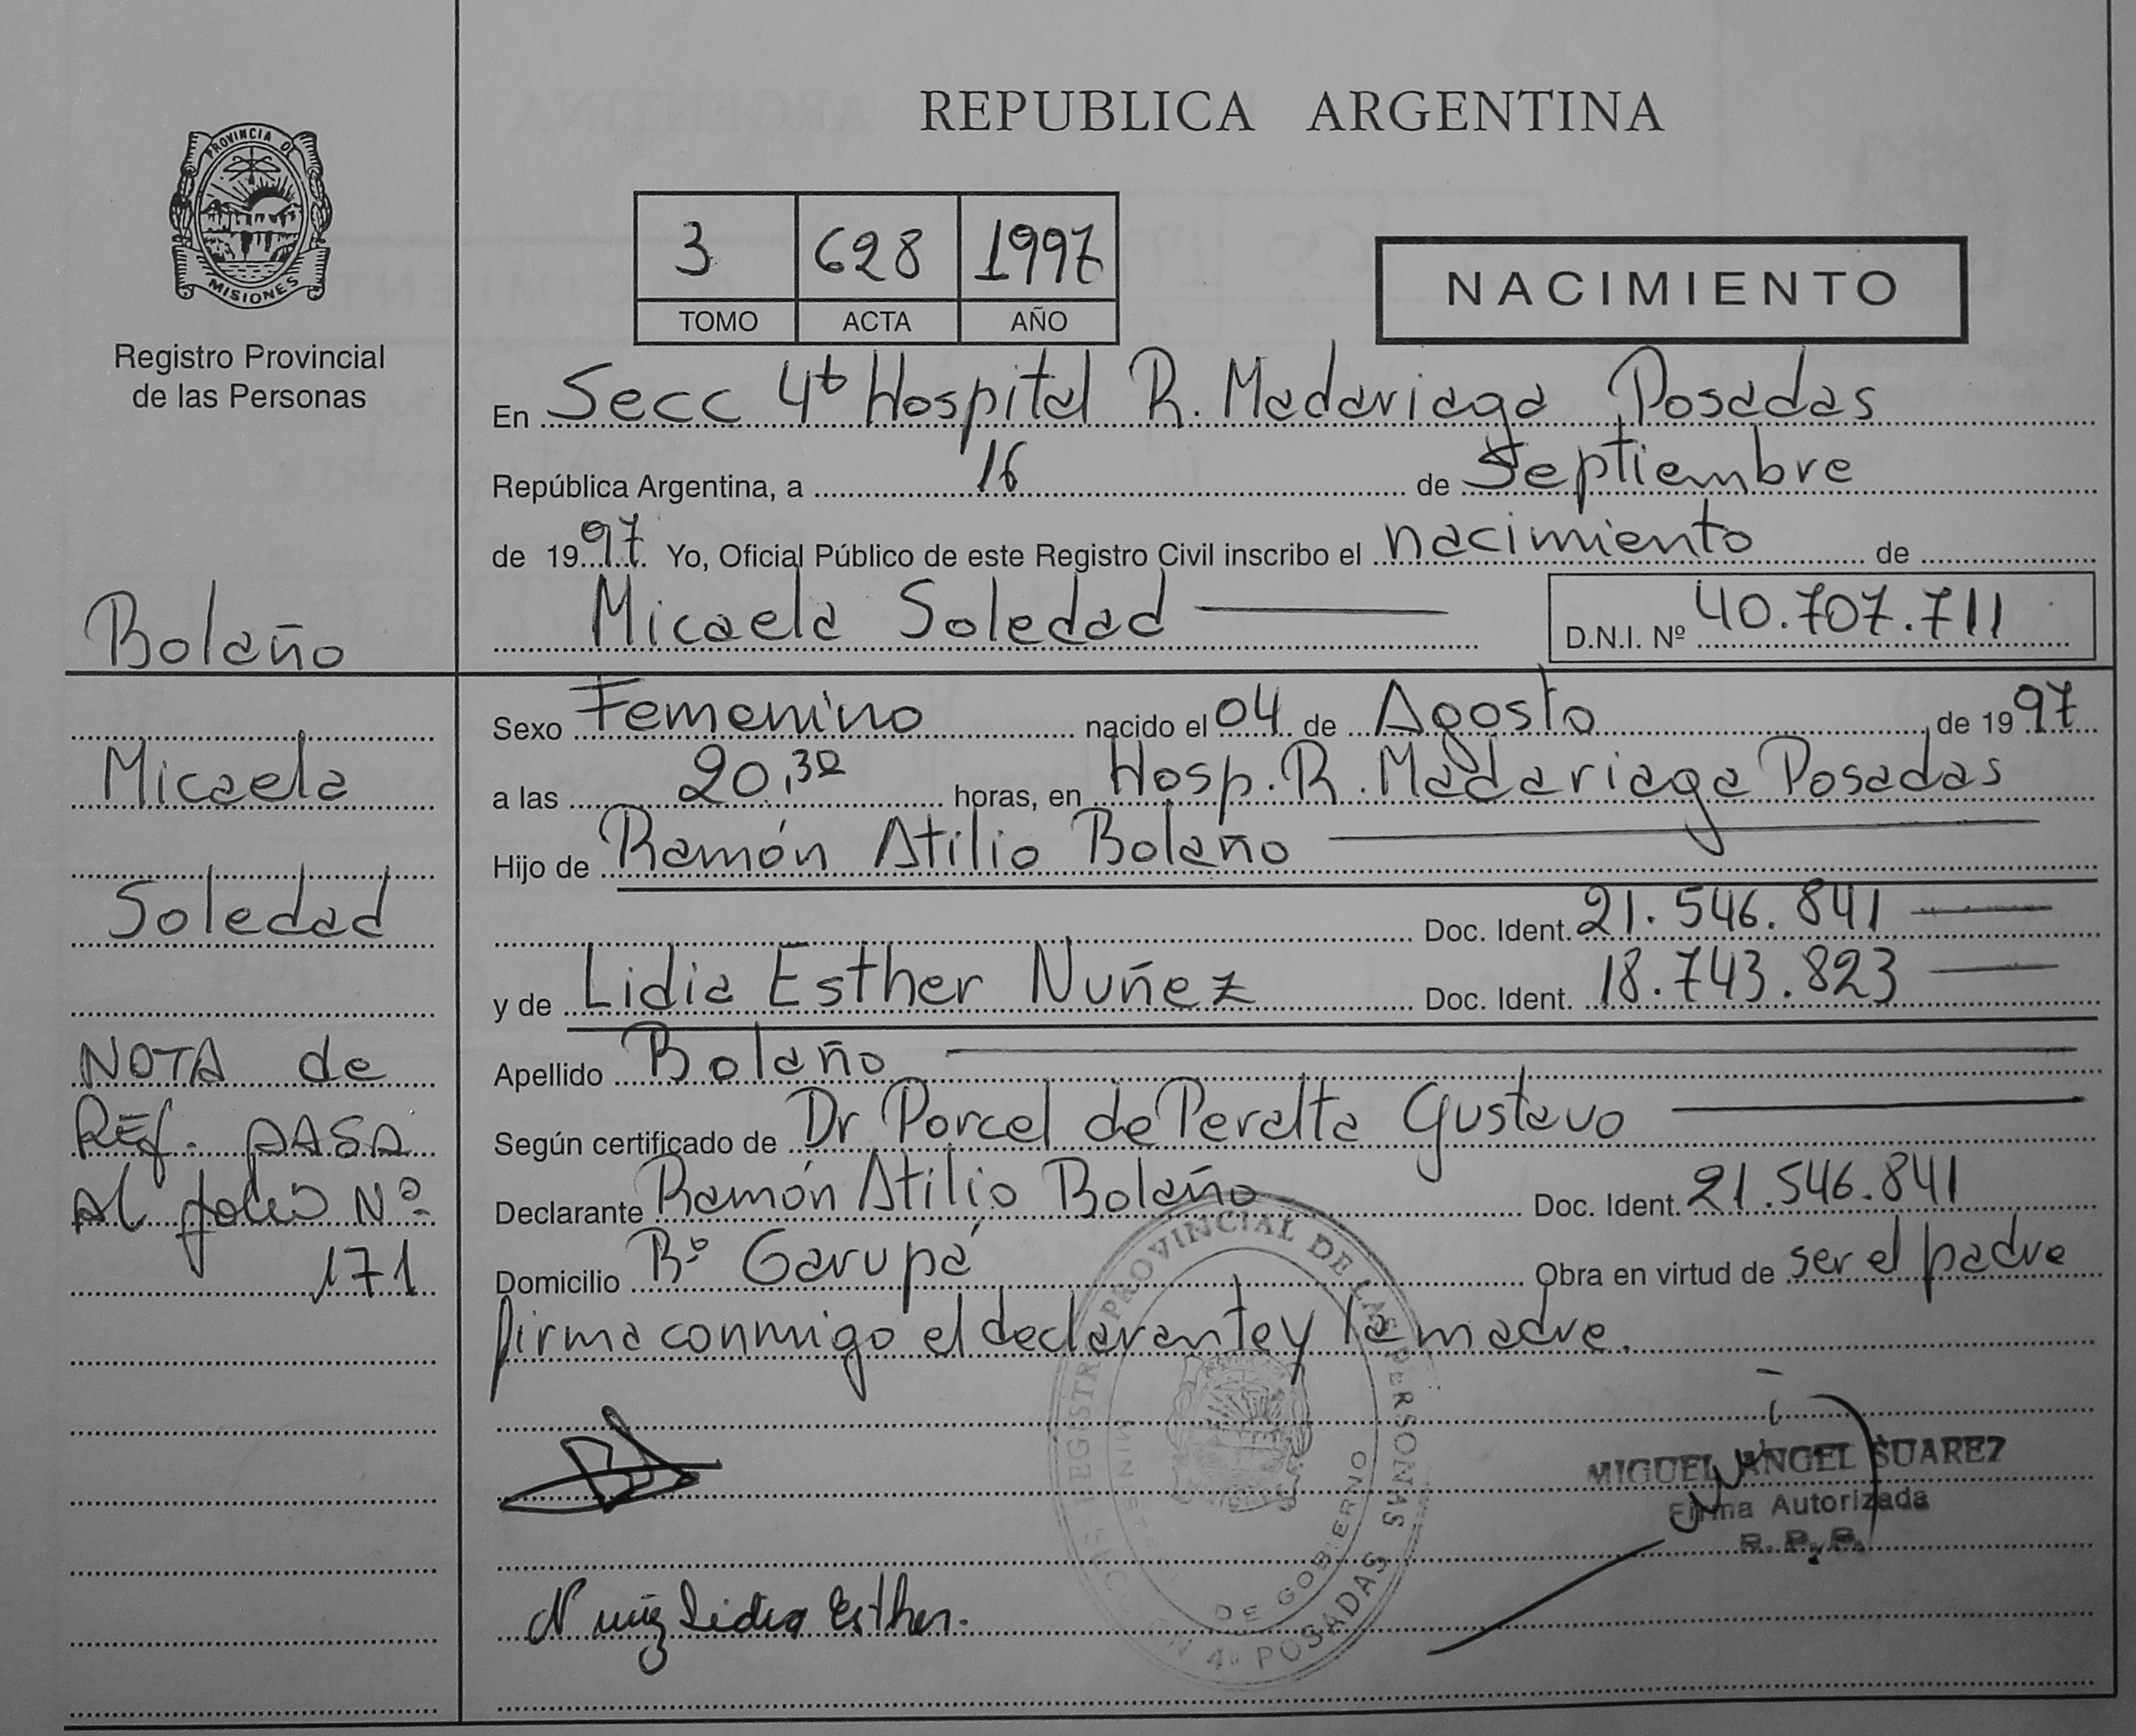 REPUBLICA ARGENTINA
PROVINCIA DE
MISIONES
Registro Provincial
de las Personas
3 628 1997
TOMO ACTA AÑO
NACIMIENTO
En Secc 4ta Hospital R. Madariaga Posadas
República Argentina, a 16 de Septiembre
de 1997. Yo, Oficial Público de este Registro Civil inscribo el nacimiento de
Micaela Soledad
D.N.I. Nº 40.707.711
Bolaño
Micaela
Soledad
NOTA de
REf. PASA
Al folio Nº
171
Sexo Femenino nacido el 04 de Agosto de 1997
a las 20,30 horas, en Hosp. R. Madariaga Posadas
Hijo de Ramón Atilio Bolaño
Doc. Ident. 21.546.841
y de Lidia Esther Nuñez Doc. Ident. 18.743.823
Apellido Bolaño
Según certificado de Dr Porcel de Peralta Gustavo
Declarante Ramón Atilio Bolaño Doc. Ident. 21.546.841
Domicilio Bº Garupá Obra en virtud de ser el padre
firma conmigo el declarante y la madre.
REGISTRO PROVINCIAL DE LAS PERSONAS
DE GOBIERNO
SECCION 4º POSADAS
MIGUEL ANGEL SUAREZ
Firma Autorizada
R. P. P.
Nuñez Lidia Esther.